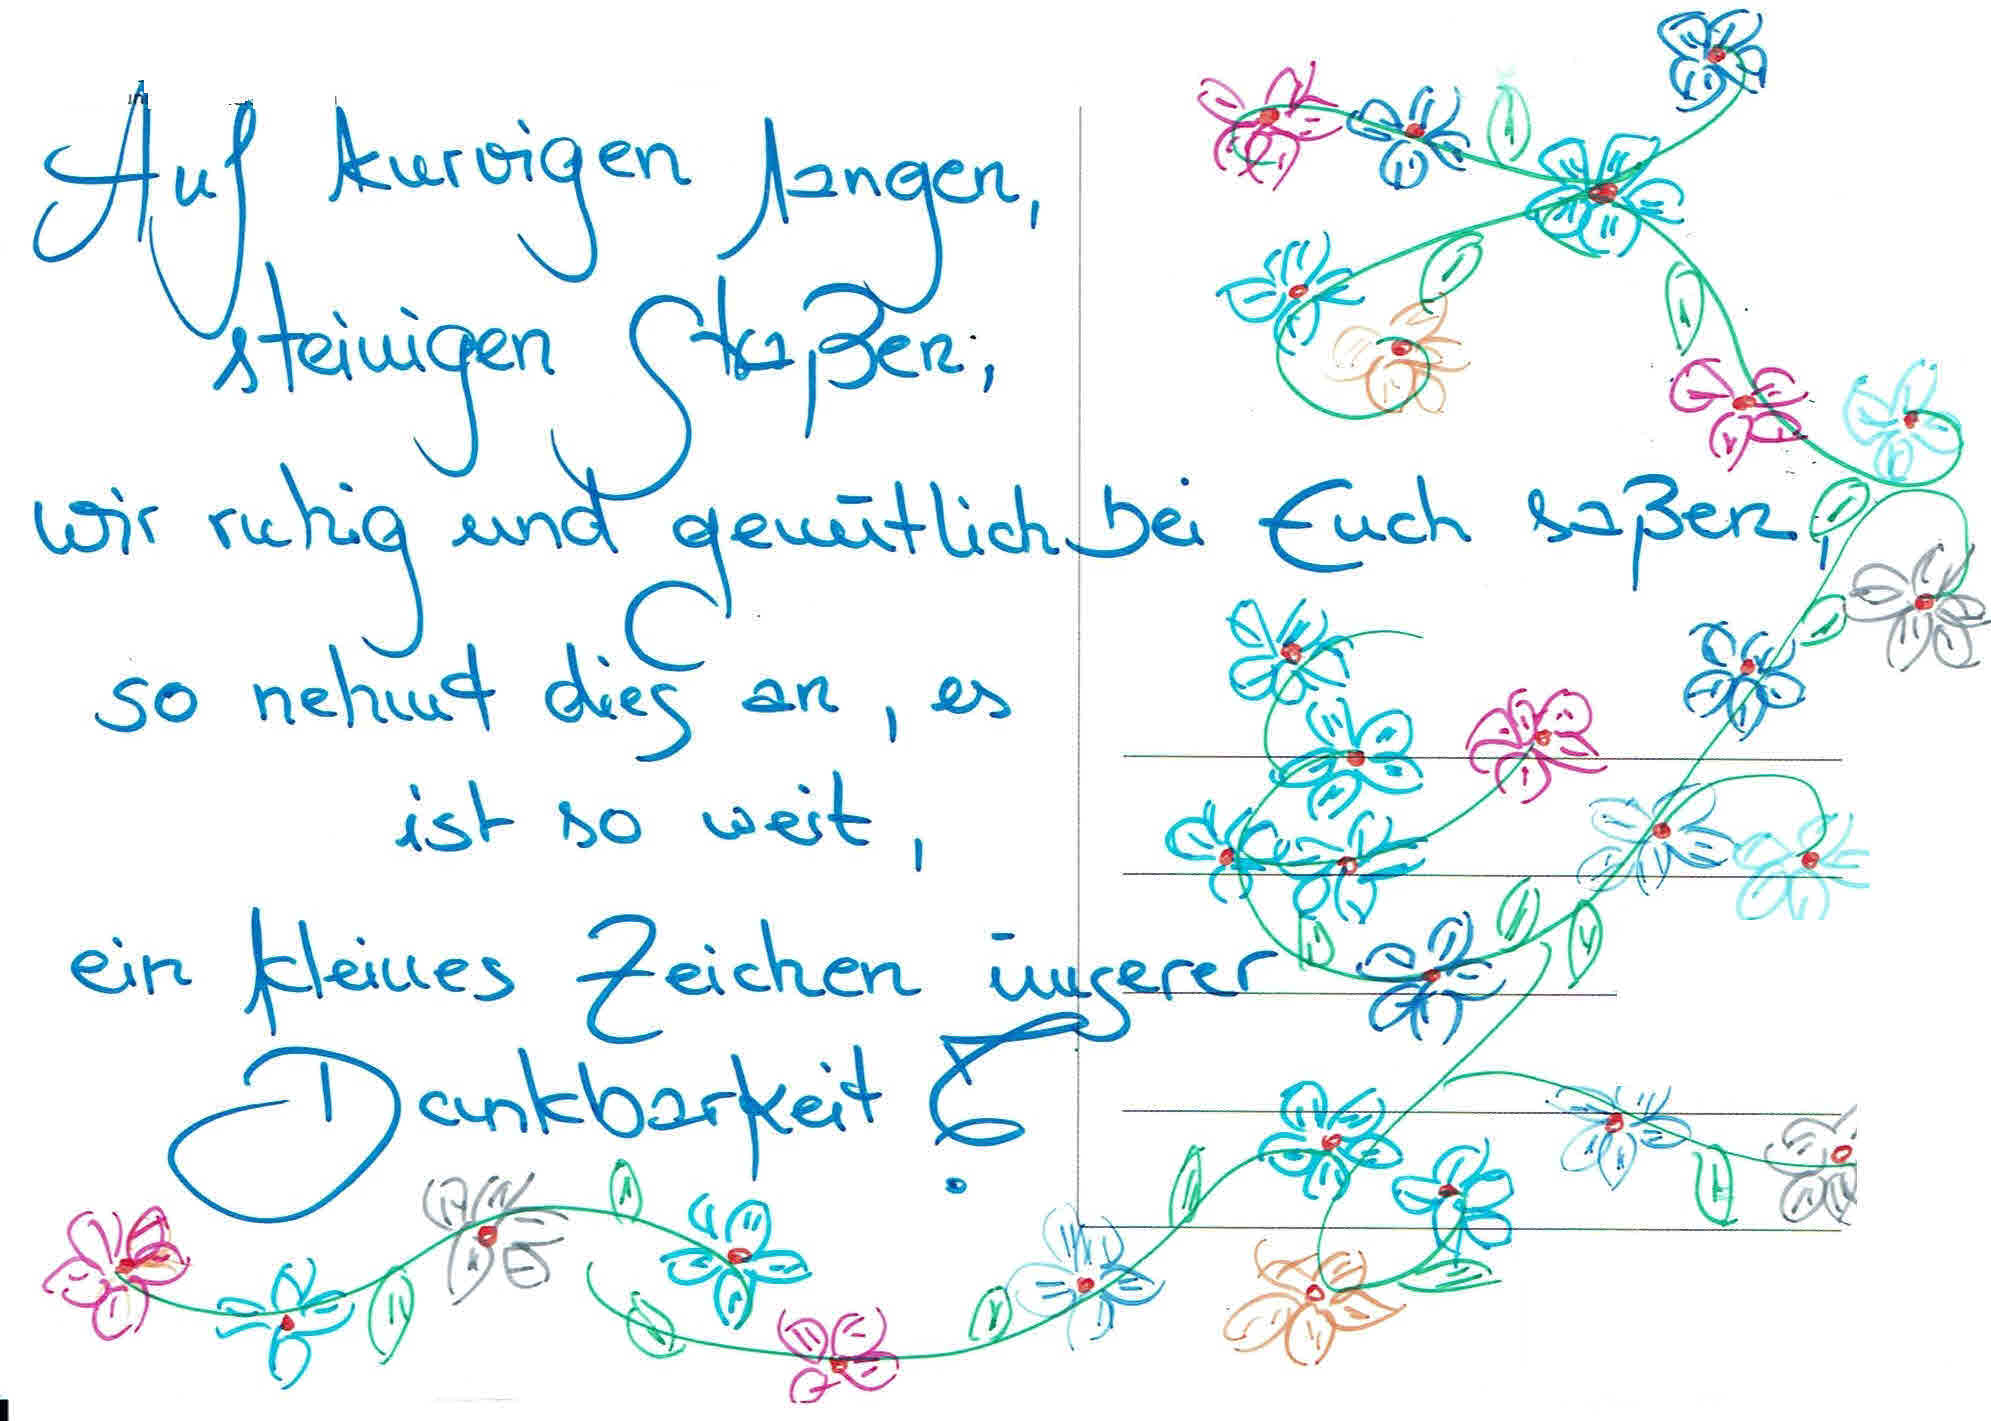 Auf kurvigen langen,
steinigen Staßen,
wir ruhig und gemütlich bei Euch saßen,
so nehmt dies an, es
ist so weit,
ein kleines Zeichen unserer
Dankbarkeit!